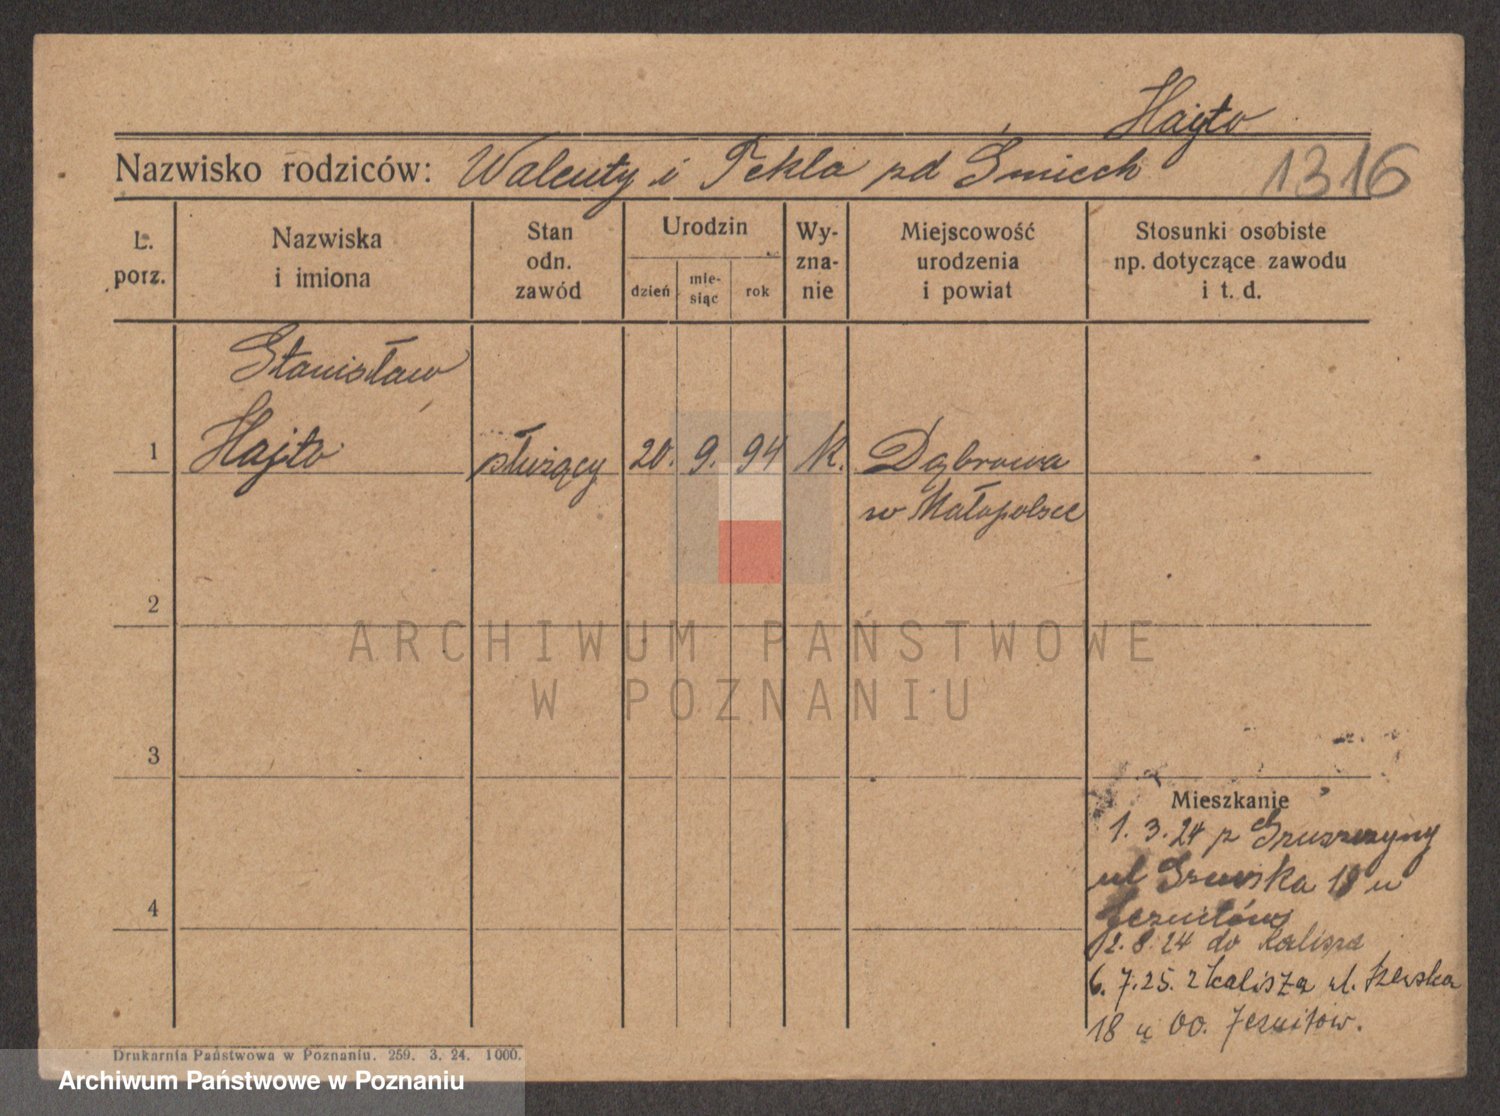 Hajto
Nazwisko rodziców: Walenty i Tekla zd Śmiech 1316
L. porz.
Nazwiska i imiona
Stan odn. zawód
Urodzin
dzień
mie-
siąc
rok
Wy-
zna-
nie
Miejscowość
urodzenia
i powiat
Stosunki osobiste
np. dotyczące zawodu
i t. d.
Stanisław
1 Hajto służący 20. 9. 94 K. Dąbrowa
w Małopolsce
2
3
4
Mieszkanie
1. 3. 24 z
ul Szewska 18 u
Jezuitów
12. 8. 24 do Kalisza
6. 7. 25. z Kalisza ul. Szewska
18 u OO. Jezuitów.
Drukarnia Państwowa w Poznaniu. 259. 3. 24. 1000.
ARCHIWUM PAŃSTWOWE
W POZNANIU
Archiwum Państwowe w Poznaniu